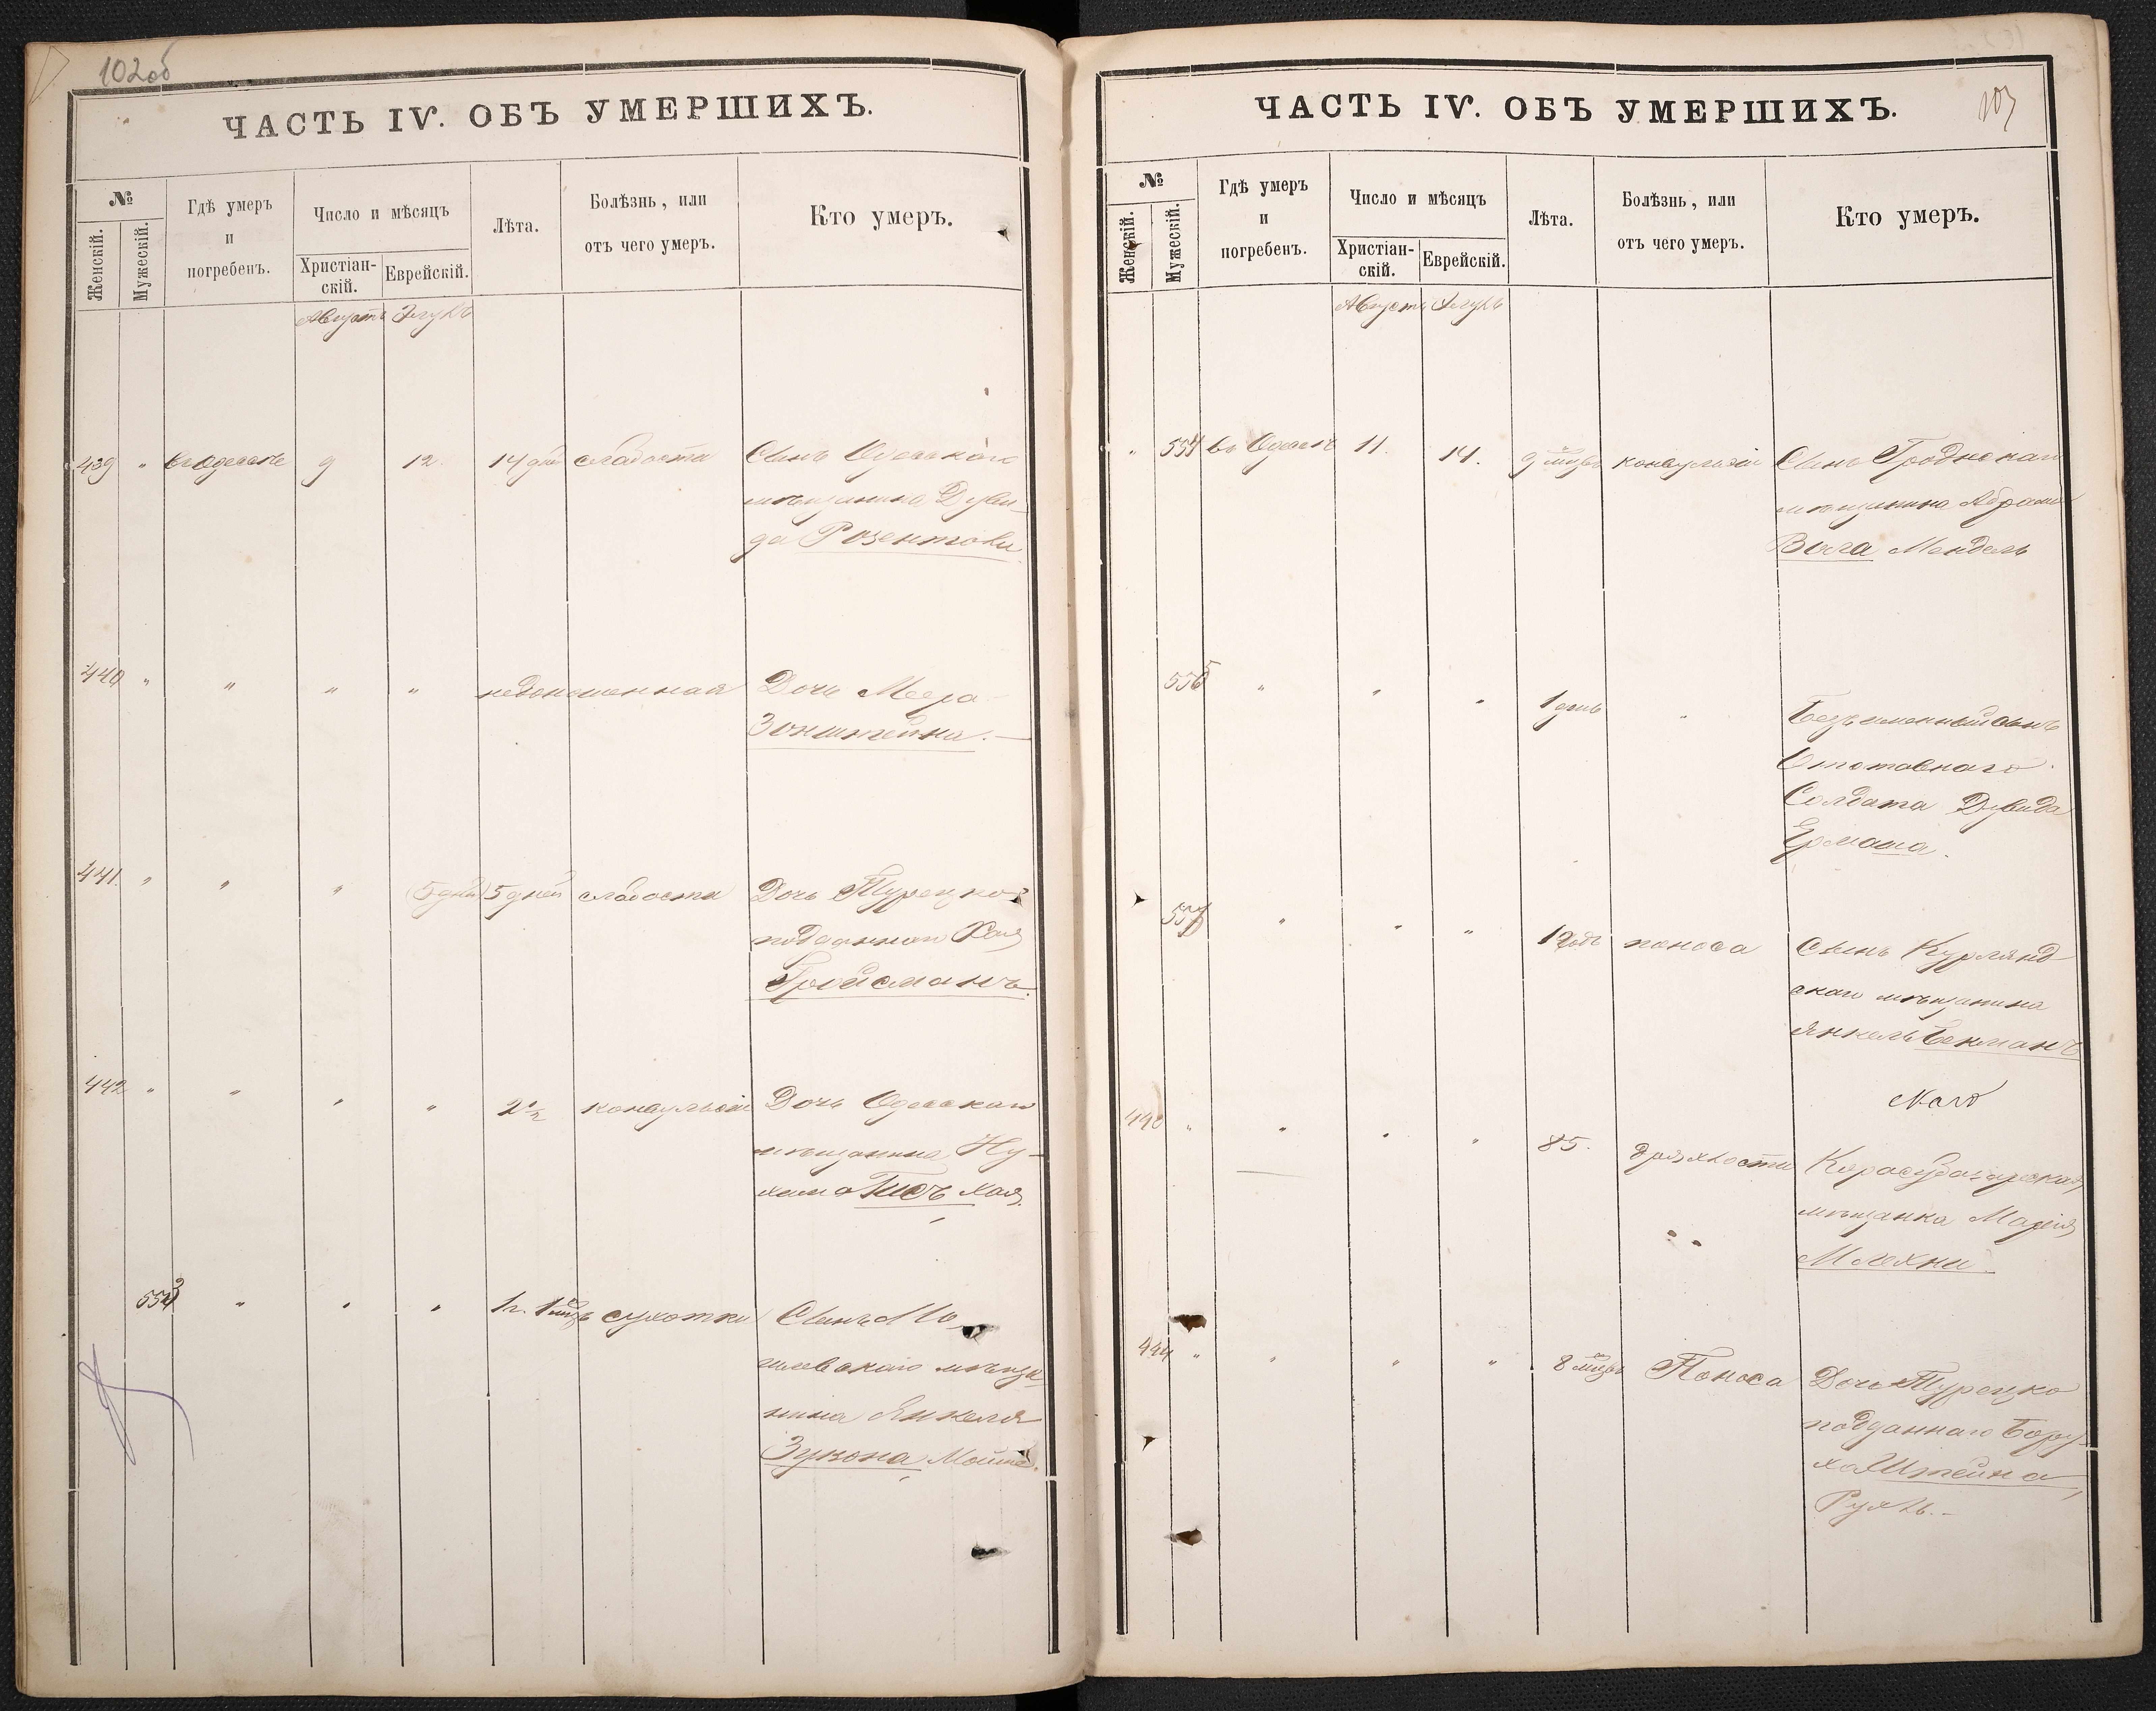 102об
ЧАСТЬ IV. ОБЪ УМЕРШИХЪ.
№
Женскій.
Мужескій.
Гдѣ умеръ
и
погребенъ.
Число и мѣсяцъ
Христіан-
скій.
Еврейскій.
Лѣта.
Болѣзнь, или
отъ чего умеръ.
Кто умеръ.
Августъ Элулъ
439 " въ Одессѣ 9 12. 14 дней слабости Сынъ Одесскаго
мѣщанина Дуви-
да
440 " " " " недоношенная Дочь Меера
Зонштейна.
441. " " " (5 дней) 5 дней слабости Дочь Турецко
подданнаго
Гройсманъ.
442 " " " " 2½ конвульсій Дочь Одесскаго
мѣщанина Ну-
хима Хая.
553 " " " 1 г. 1 мѣс. сухотки Сынъ Мо-
гилевскаго мѣща-
нина Янкеля
Зукона, Мойше.
ЧАСТЬ IV. ОБЪ УМЕРШИХЪ.
103
№
Женскій.
Мужескій.
Гдѣ умеръ
и
погребенъ.
Число и мѣсяцъ
Христіан-
скій.
Еврейскій.
Лѣта.
Болѣзнь, или
отъ чего умеръ.
Кто умеръ.
Августъ Элулъ
" 554 въ Одессѣ 11. 14. 9 мѣсяц. конвульсій Сынъ Гродненскаго
мѣщанина Абрама
Мендель
555 " " " 1 день " Безъименный сынъ
Отставнаго
Солдата Дувида
Ермана.
" " " 1 годъ поноса Сынъ Курлянд
скаго мѣщанина
Янкель Бекманъ
" " " " 85. дряхлости Карасубазарская
мѣщанка Марія
444 " " " " 8 мѣсяц. Поноса Дочь Турецко
подданнаго Бору-
ха Штейна,
Рухль.-